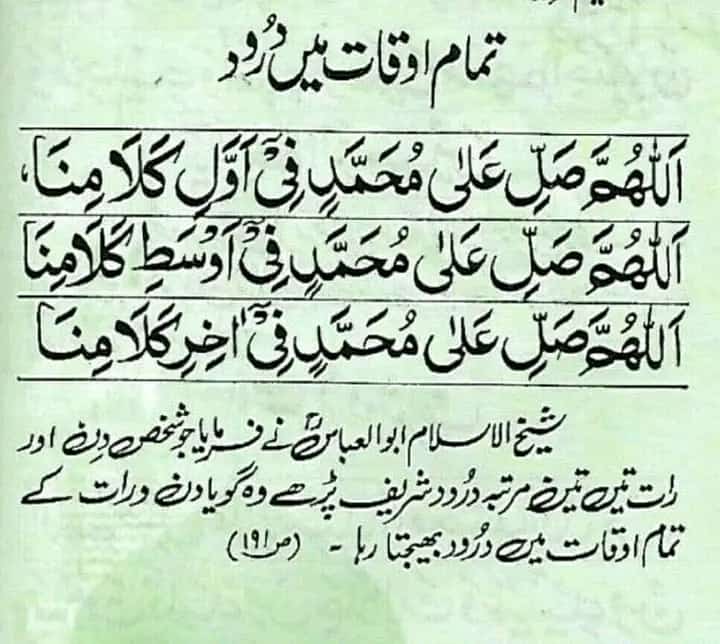 تمام اوقات میں درُود
اَللّٰهُمَّ صَلِّ عَلٰى مُحَمَّدٍ فِىْٓ اَوَّلِ كَلَامِنَا،
اَللّٰهُمَّ صَلِّ عَلٰى مُحَمَّدٍ فِىْٓ اَوْسَطِ كَلَامِنَا
اَللّٰهُمَّ صَلِّ عَلٰى مُحَمَّدٍ فِىْٓ اٰخِرِ كَلَامِنَا
شیخ الاسلام ابوالعباسؒ نے فرمایا جو شخص دن اور
رات تین تین مرتبہ درُود شریف پڑھے وہ گویا دن ورات کے
تمام اوقات میں درُود بھیجتا رہا ۔ (ص ۱۹۱)